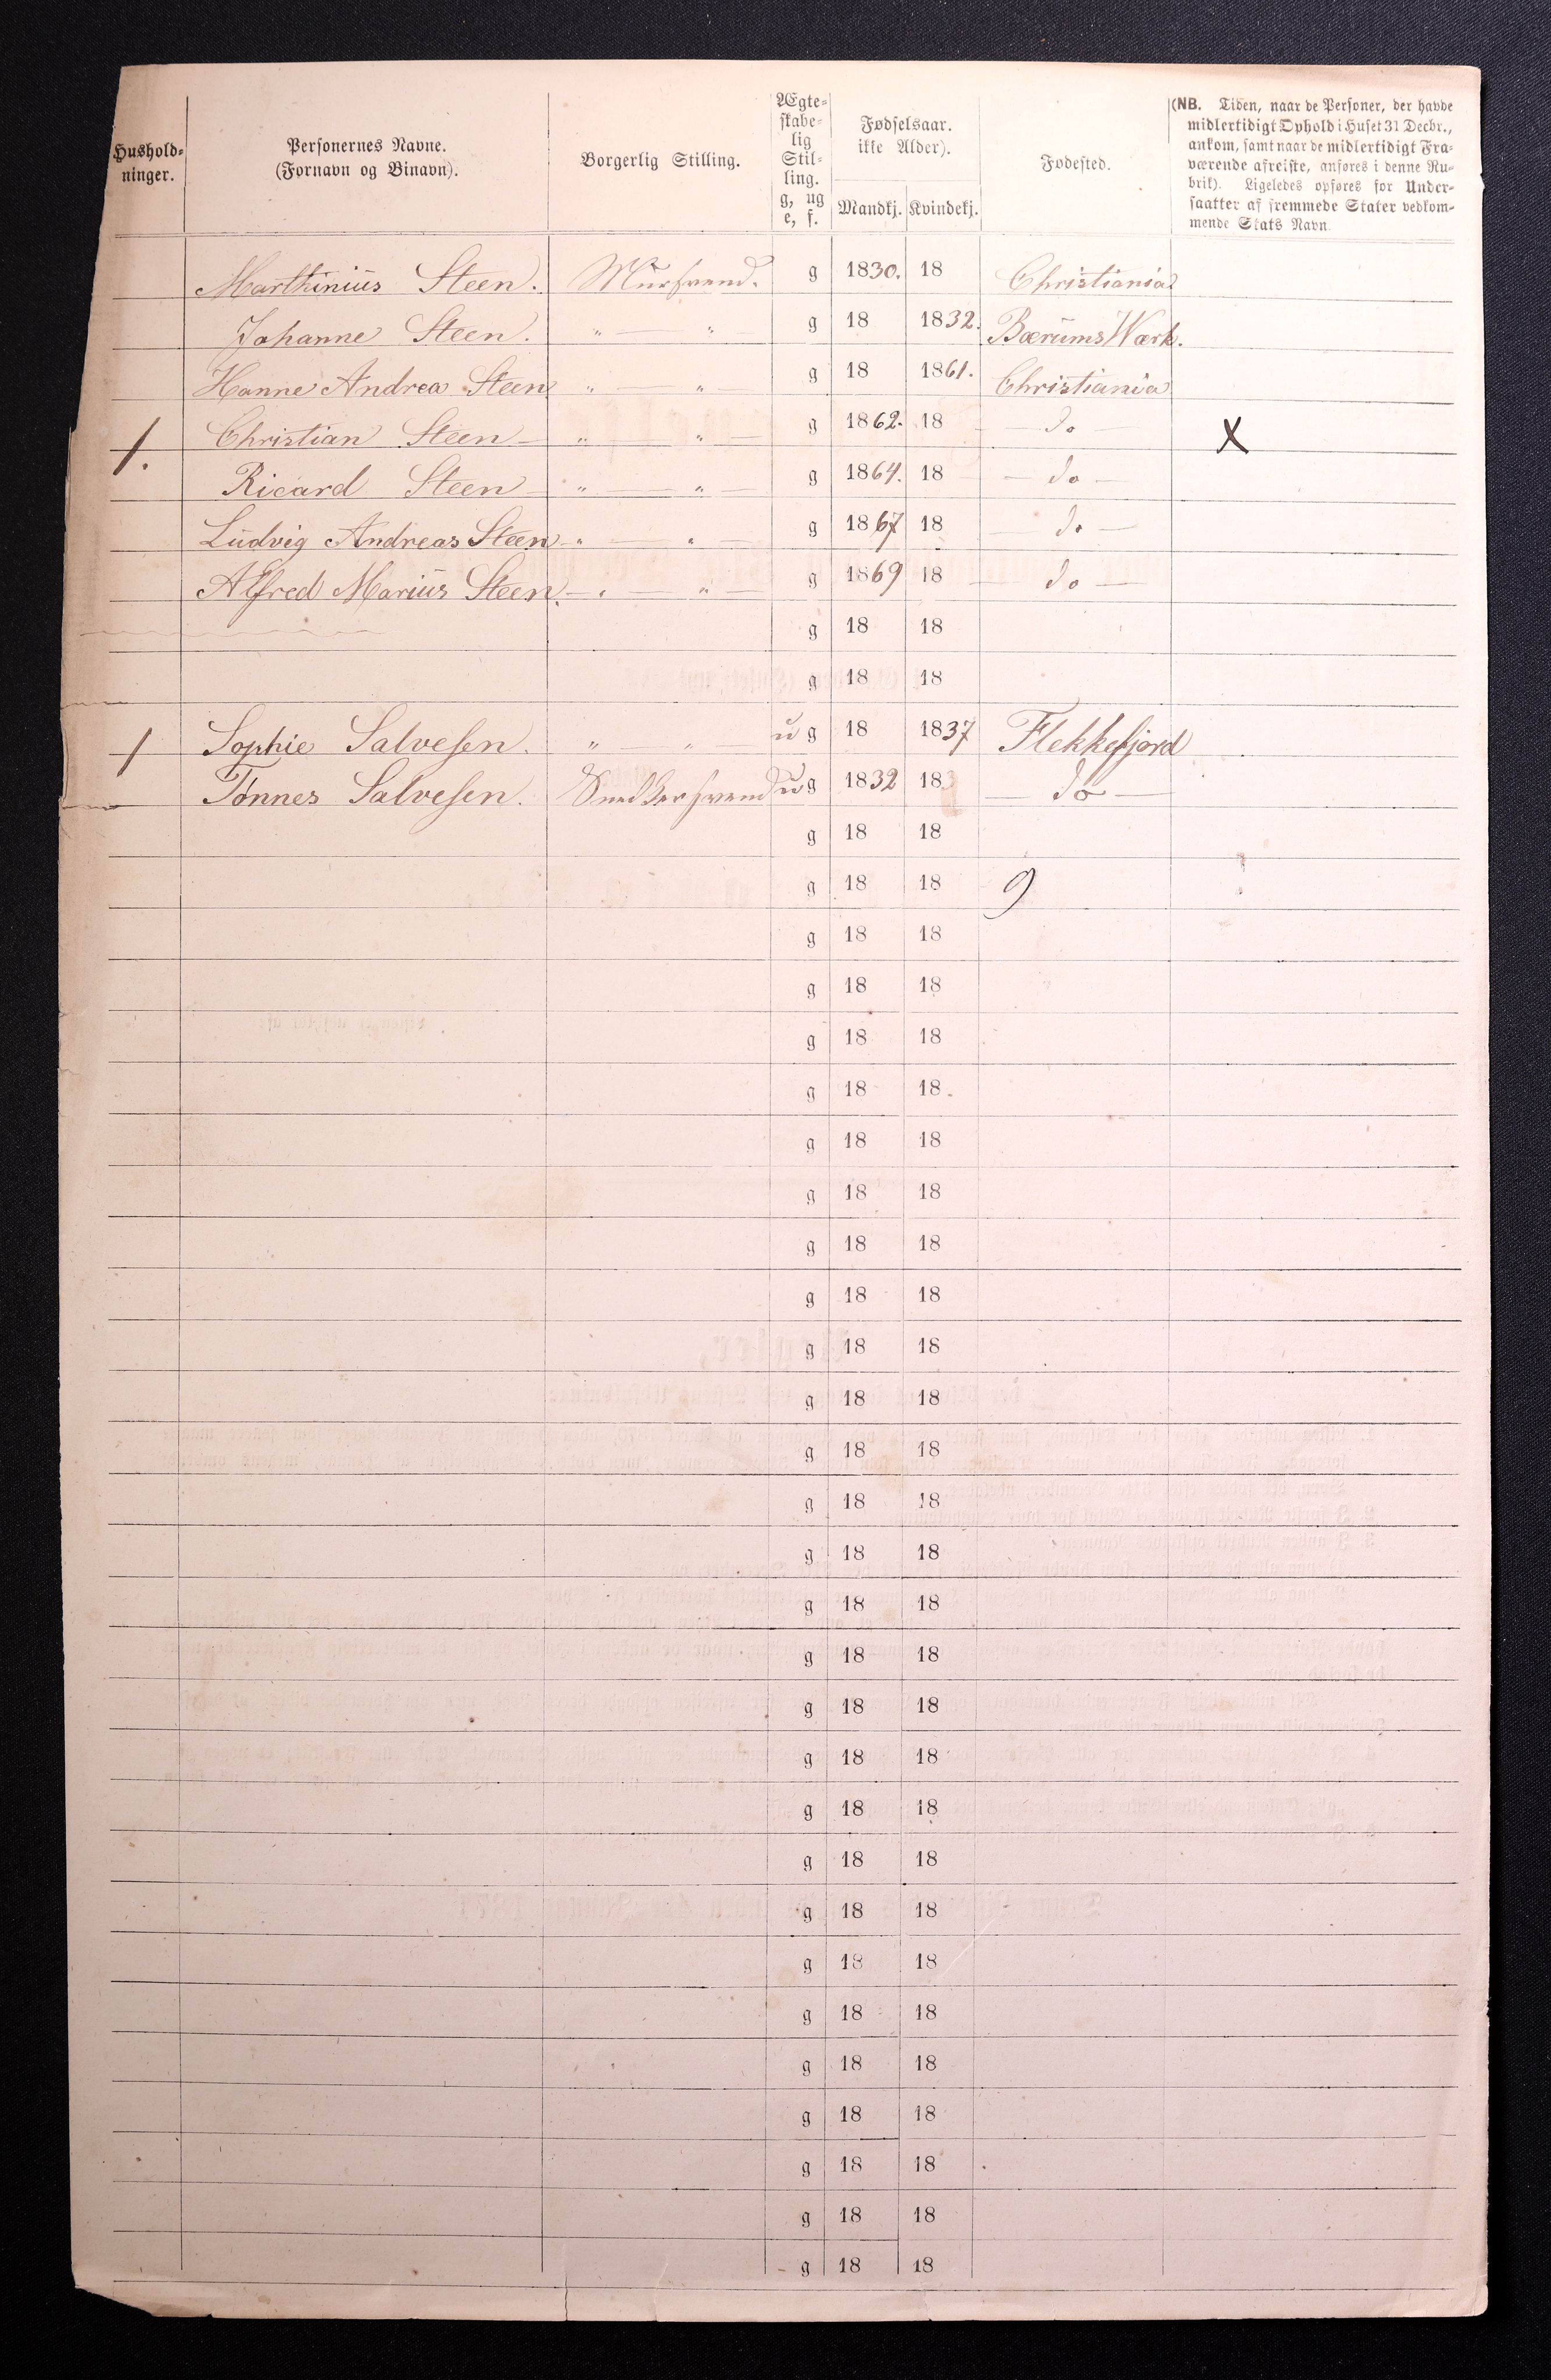 Hushold-
ninger.
Personernes Navne.
(Fornavn og Binavn).
Borgerlig Stilling.
Ægte-
skabe-
lig
Stil-
ling.
g, ug
e, f.
Fødselsaar.
ikke Alder).
Mandkj. Kvindekj.
Fødested.
(NB. Tiden, naar de Personer, der havde
midlertidigt Ophold i Huset 31 Decbr.,
ankom, samt naar de midlertidigt Fra-
værende afreiste, anføres i denne Ru-
brik). Ligeledes opføres for Under-
saatter af fremmede Stater vedkom-
mende Stats Navn.
Marthinius Steen. Mursvend. g 1830. 18 Christiania
Johanne Steen. " — " — g 18 1832. Bærums Værk.
Hanne Andrea Steen " — " — g 18 1861. Christiania
1. Christian Steen — " — " — g 1862. 18 — Do — X
Ricard Steen — " — " — g 1864. 18 — do —
Ludvig Andreas Steen — " — " — g 1867 18 — do —
Alfred Marius Steen. — " — " — g 1869 18 — do —
g 18 18
g 18 18
1 Sophie Salvesen. " — " — u g 18 1837 Flekkefjord
Tønnes Salvesen. Snedkersvend u g 1832 183 — do —
g 18 18
g 18 18 9
g 18 18
g 18 18
g 18 18
g 18 18
g 18 18
g 18 18
g 18 18
g 18 18
g 18 18
g 18 18
g 18 18
g 18 18
g 18 18
g 18 18
g 18 18
g 18 18
g 18 18
g 18 18
g 18 18
g 18 18
g 18 18
g 18 18
g 18 18
g 18 18
g 18 18
g 18 18
g 18 18